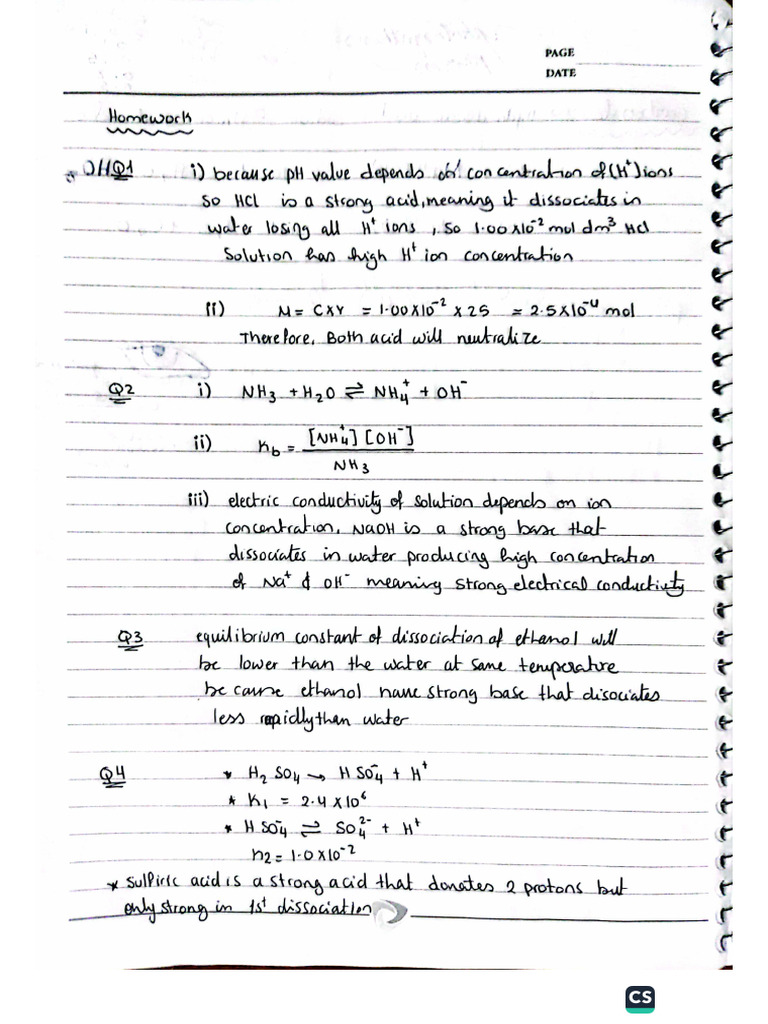 PAGE
DATE
Homework
Q1 i) because pH value depends on concentration of (H⁺) ions
so HCl is a strong acid, meaning it dissociates in
water losing all H⁺ ions, so 1.00x10⁻² mol dm³ HCl
Solution has high H⁺ ion concentration
ii) N = CXV = 1.00X10⁻² x 25 = 2.5X10⁻⁴ mol
Therefore, Both acid will neutralize
Q2 i) NH₃ + H₂O ⇌ NH₄⁺ + OH⁻
ii) Kb = [NH₄⁺] [OH⁻]
NH₃
iii) electric conductivity of solution depends on ion
concentration, NaOH is a strong base that
dissociates in water producing high concentration
of Na⁺ & OH⁻ meaning strong electrical conductivity
Q3 equilibrium constant of dissociation of ethanol will
be lower than the water at same temperature
because ethanol have strong base that disociates
less rapidly than water
Q4 * H₂SO₄ → HSO₄⁻ + H⁺
* K₁ = 2.4 x 10⁶
* HSO₄⁻ ⇌ SO₄²⁻ + H⁺
K2 = 1.0 X10⁻²
* Sulfiric acid is a strong acid that donates 2 protons but
only strong in 1st dissociation
CS